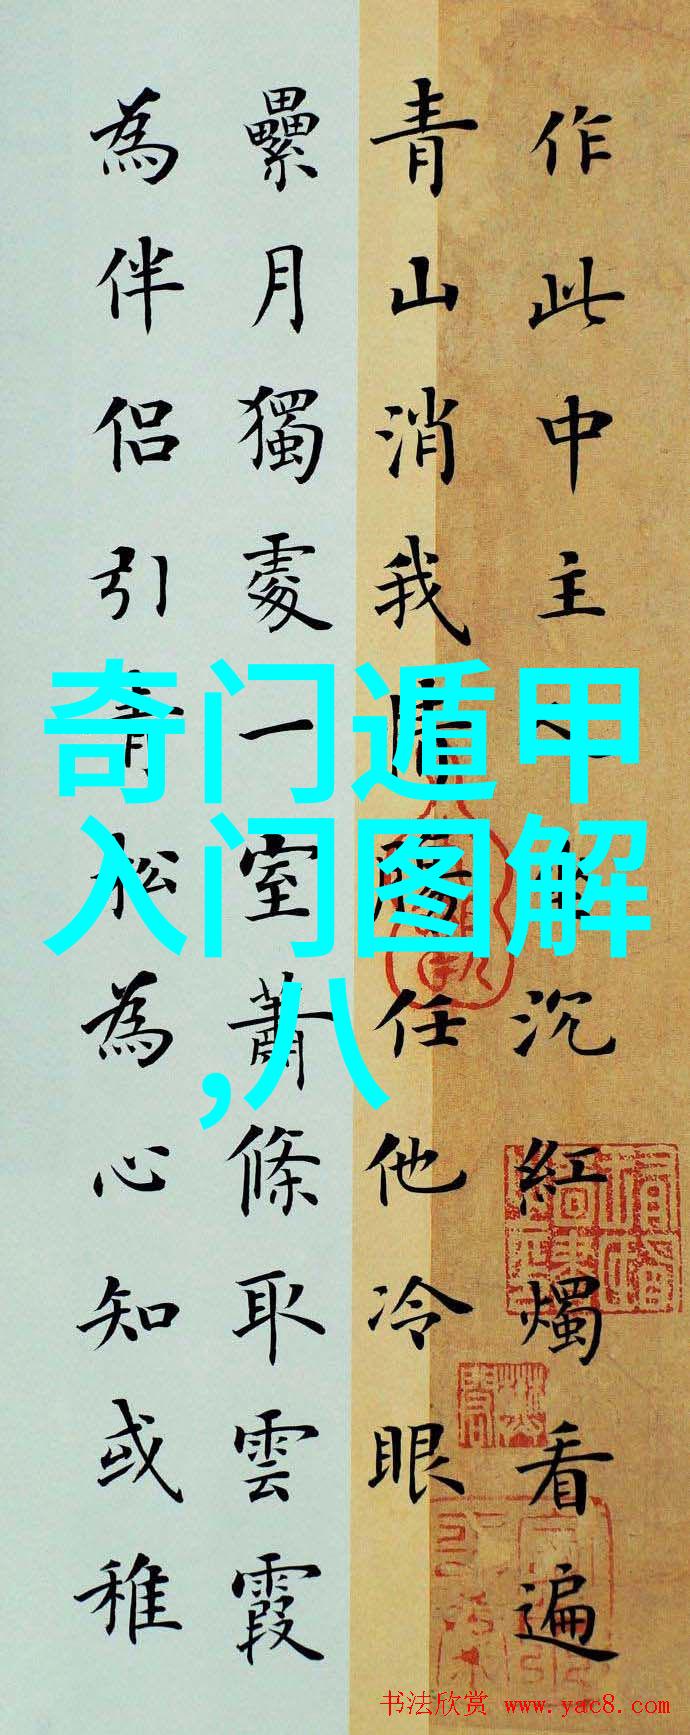 作此中主人坐沉紅燭看遍
青山消我情腸任他冷眼
纍月獨處一室蕭條取雲霞
為伴侶引青松為心知或稚
奇门遁甲
入门图解
,八
书法欣赏 www.yac8.com